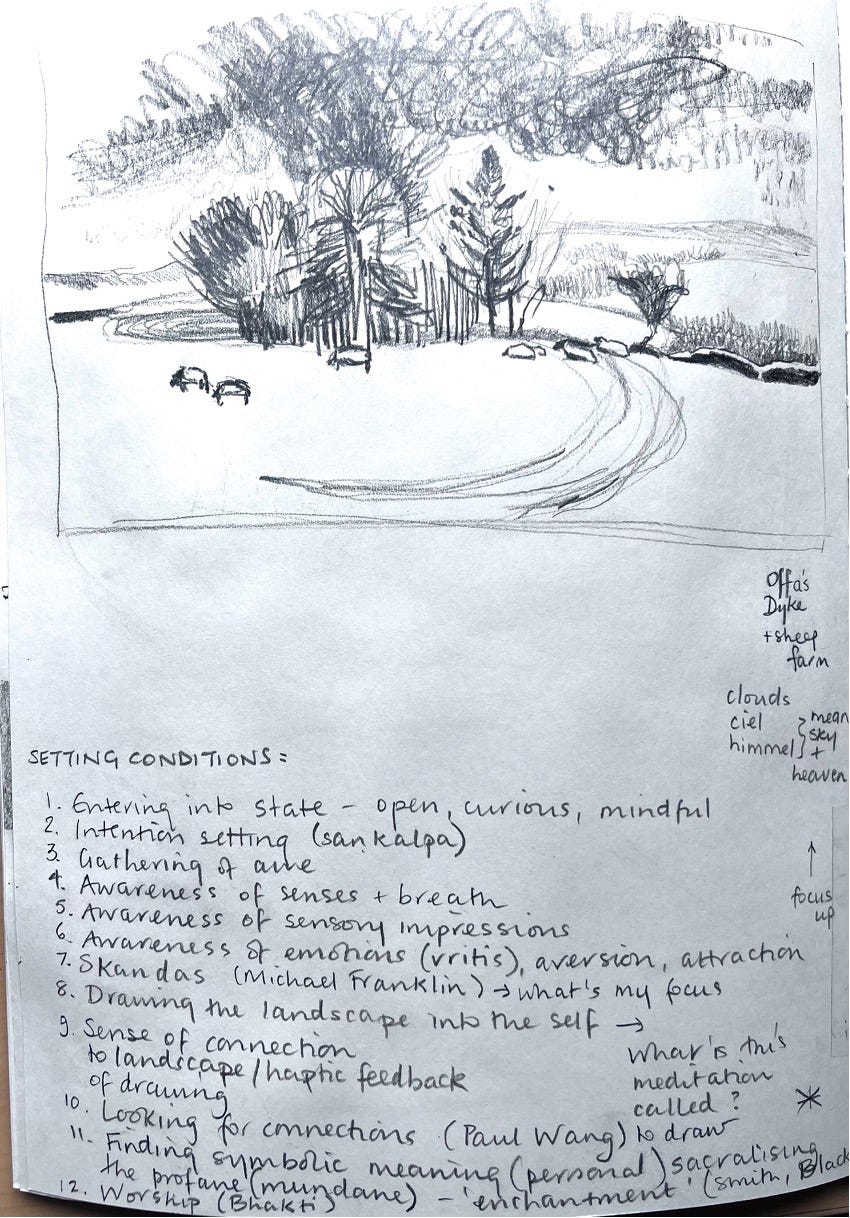 Offa's
Dyke
+ sheep
farm
clouds
ciel
himmel
mean
sky
+
heaven
SETTING CONDITIONS:
1. Entering into state - open, curious, mindful
2. Intention setting (sankalpa)
3. Gathering of awe
4. Awareness of senses + breath
5. Awareness of sensory impressions
6. Awareness of emotions (vritis), aversion, attraction
7. Skandas (Michael Franklin) → what's my focus
8. Drawing the landscape into the self →
9. Sense of connection
to landscape/haptic feedback
of drawing
What's this
meditation
called?
focus
up
10. Looking for connections (Paul Wang) to draw
11. Finding symbolic meaning (personal) sacralising
the profane (mundane) - 'enchantment' (Smith, Black
12. Worship (Bhakti)